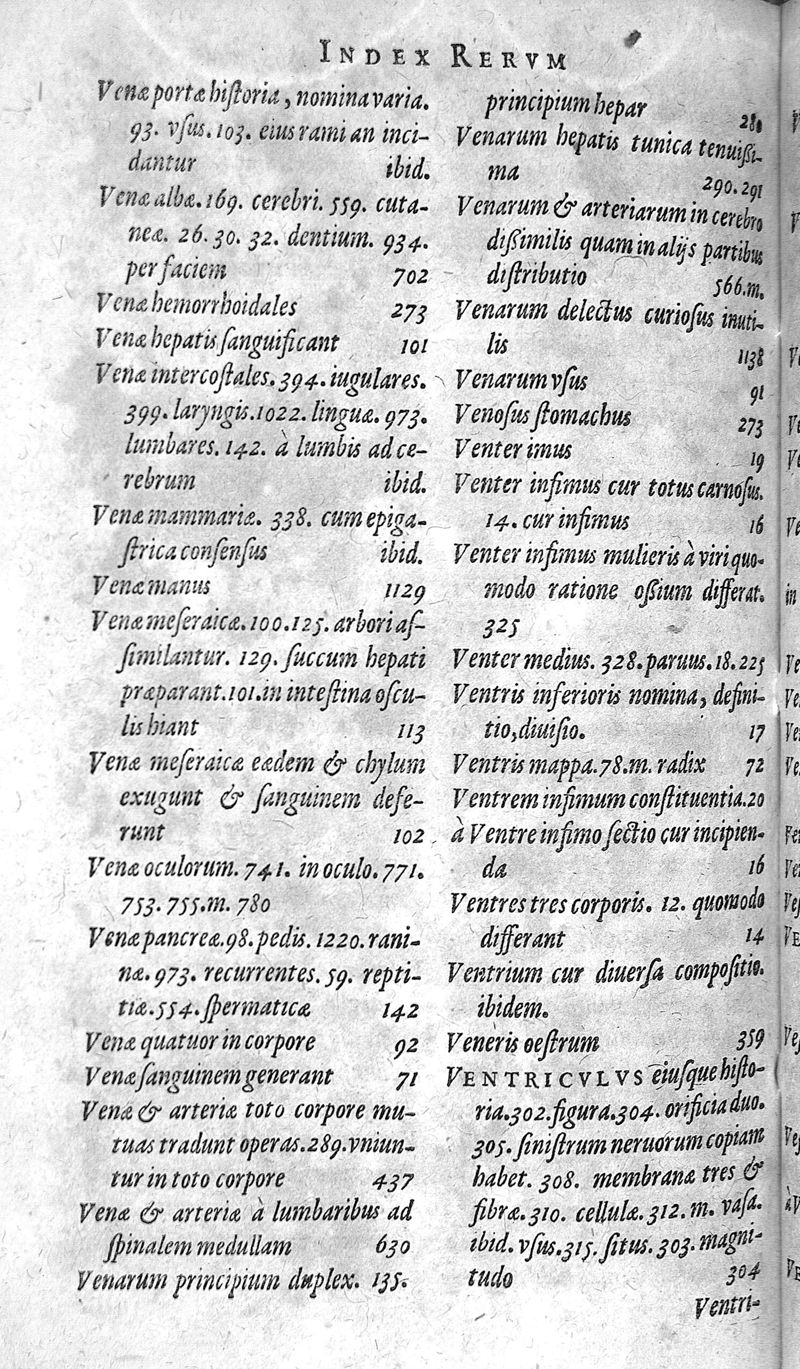 INDEX RERVM
Venæ portæ hiſtoria, nomina varia.
93. vſus. 103. eius rami an inci-
dantur ibid.
Venæ albæ. 169. cerebri. 559. cuta-
neæ. 26. 30. 32. dentium. 934.
per faciem 702
Venæ hemorrhoidales 273
Venæ hepatis ſanguificant 101
Venæ intercoſtales. 394. iugulares.
399. laryngis. 1022. linguæ. 973.
lumbares. 142. à lumbis ad ce-
rebrum ibid.
Venæ mammariæ. 338. cum epiga-
ſtrica conſenſus ibid.
Venæ manus 1129
Venæ meſeraicæ. 100. 125. arbori aſ-
ſimilantur. 129. ſuccum hepati
præparant. 101. in inteſtina oſcu-
lis hiant 113
Venæ meſeraicæ eædem & chylum
exugunt & ſanguinem defe-
runt 102
Venæ oculorum. 741. in oculo. 771.
753. 755. m. 780
Venæ pancreæ. 98. pedis. 1220. rani-
næ. 973. recurrentes. 59. repti-
tiæ. 554. ſpermaticæ 142
Venæ quatuor in corpore 92
Venæ ſanguinem generant 71
Venæ & arteriæ toto corpore mu-
tuas tradunt operas. 289. vniun-
tur in toto corpore 437
Venæ & arteriæ à lumbaribus ad
ſpinalem medullam 630
Venarum principium duplex. 135.
principium hepar 280
Venarum hepatis tunica tenuißi-
ma 290. 291
Venarum & arteriarum in cerebro
dißimilis quam in alijs partibus
diſtributio 566. m.
Venarum delectus curioſus inuti-
lis 1138
Venarum vſus 91
Venoſus ſtomachus 273
Venter imus 19
Venter infimus cur totus carnoſus.
14. cur infimus 16
Venter infimus mulieris à viri quo-
modo ratione oßium differat.
325
Venter medius. 328. paruus. 18. 225
Ventris inferioris nomina, defini-
tio, diuiſio. 17
Ventris mappa. 78. m. radix 72
Ventrem infimum conſtituentia. 20
à Ventre infimo ſectio cur incipien-
da 16
Ventres tres corporis. 12. quomodo
differant 14
Ventrium cur diuerſa compoſitio.
ibidem.
Veneris oeſtrum 359
VENTRICVLVS eiuſque hiſto-
ria. 302. figura. 304. orificia duo.
305. ſiniſtrum neruorum copiam
habet. 308. membranæ tres &
fibræ. 310. cellulæ. 312. m. vaſa.
ibid. vſus. 315. ſitus. 303. magni-
tudo 304
Ventri-